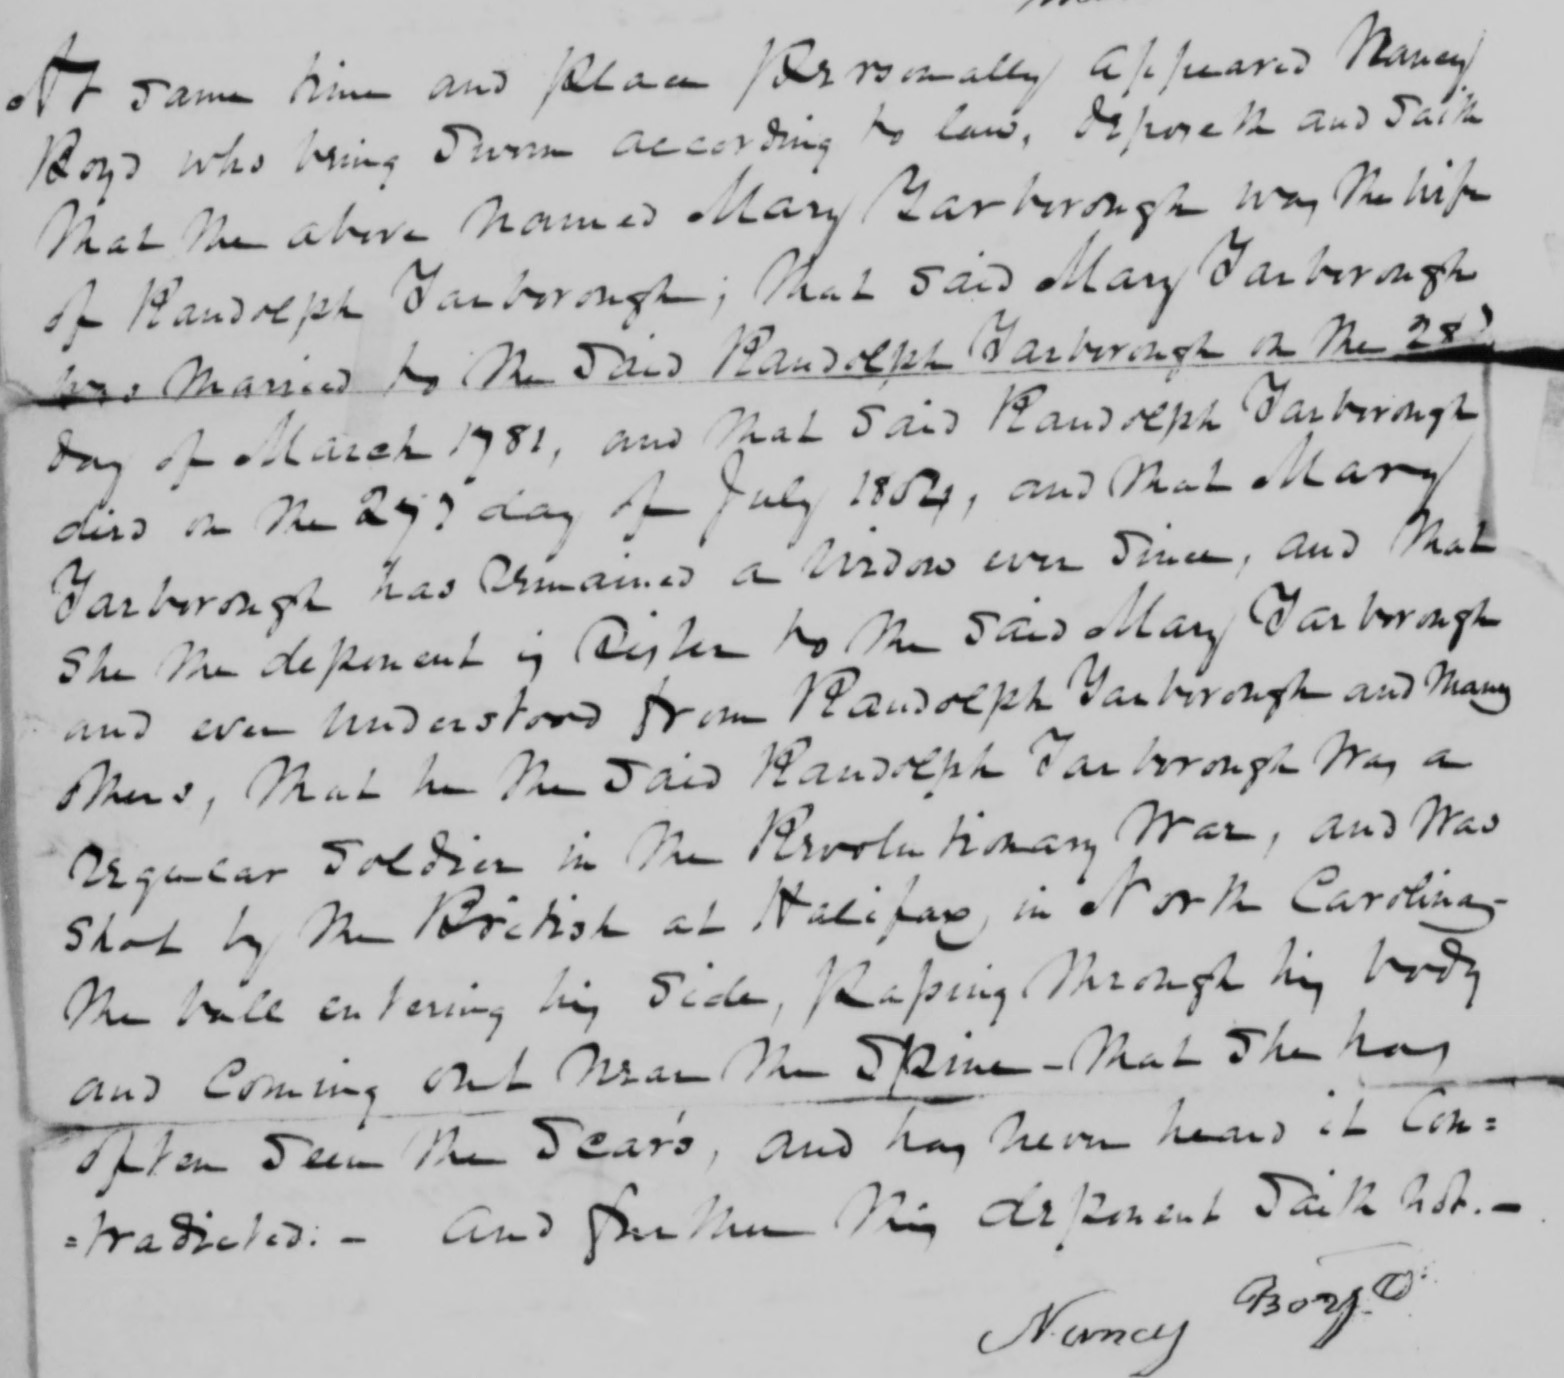 At same time and place Personally appeared Nancy
Boyd who being Sworn according to law, deposeth and Saith
that the above named Mary Yarborough was the wife
of Randolph Yarborough; that said Mary Yarborough
was married to the Said Randolph Yarborough on the 28th
day of March 1781, and that said Randolph Yarborough
died on the 27th day of July 1824, and that Mary
Yarborough has remained a widow ever since, and that
She the deponent is Sister to the said Mary Yarborough
and ever understood from Randolph Yarborough and many
others, that he the said Randolph Yarborough was a
regular Soldier in the Revolutionary War, and was
shot by the British at Halifax, in North Carolina-
the ball entering his side, passing through his body
and Coming out near the Spine - that she has
often seen the Scars, and has never heard it Con=
=tradicted. - And further this deponent saith not. -
Nancy Boyd